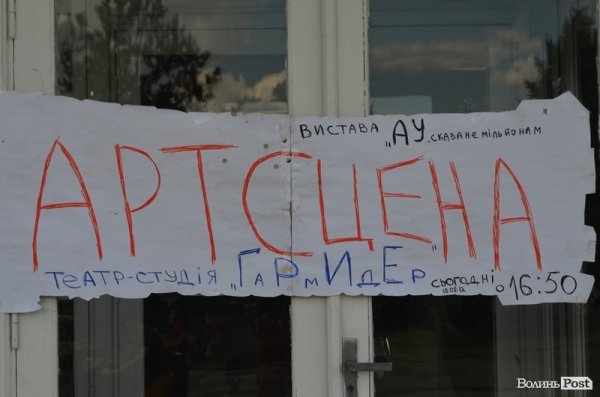 ВИСТАВА „АУ, сказане мільйонам"
АРТСЦЕНА
ТЕАТР-СТУДІЯ „ГаРмИдЕр"
сьогодні о 16:50
18.08.12
Волинь Post